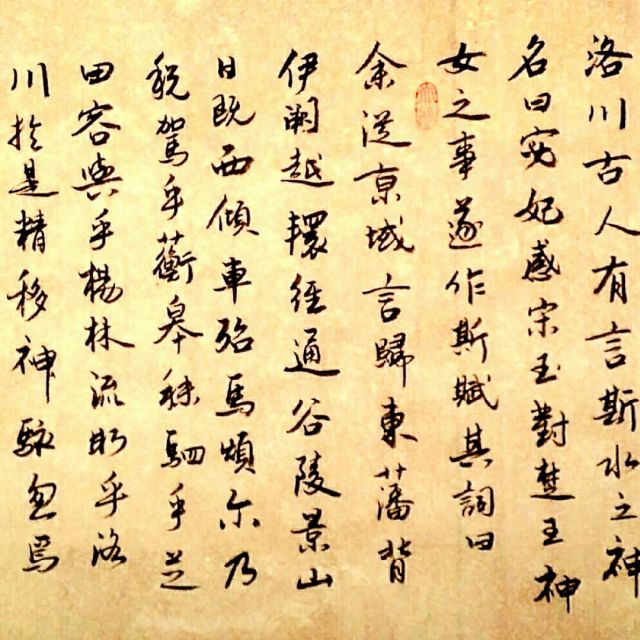 洛川古人有言斯水之神
名曰宓妃感宗玉對楚王神
女之事遂作斯賦其詞曰
余從京城言歸東藩背
伊闕越轘經通谷陵景山
日既西傾車殆馬煩尔乃
稅駕乎蘅皋秣駟乎芝
田容與乎楊林流眄乎洛
川於是精移神駭忽焉